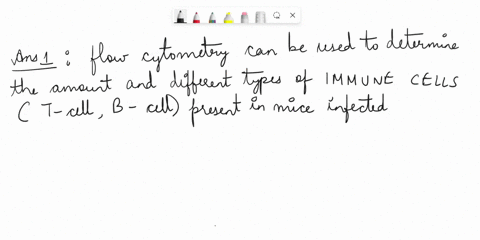 Ans 1 : flow cytometry can be used to determine
the amount and different types of IMMUNE CELLS
( T-cell, B-cell) present in mice infected